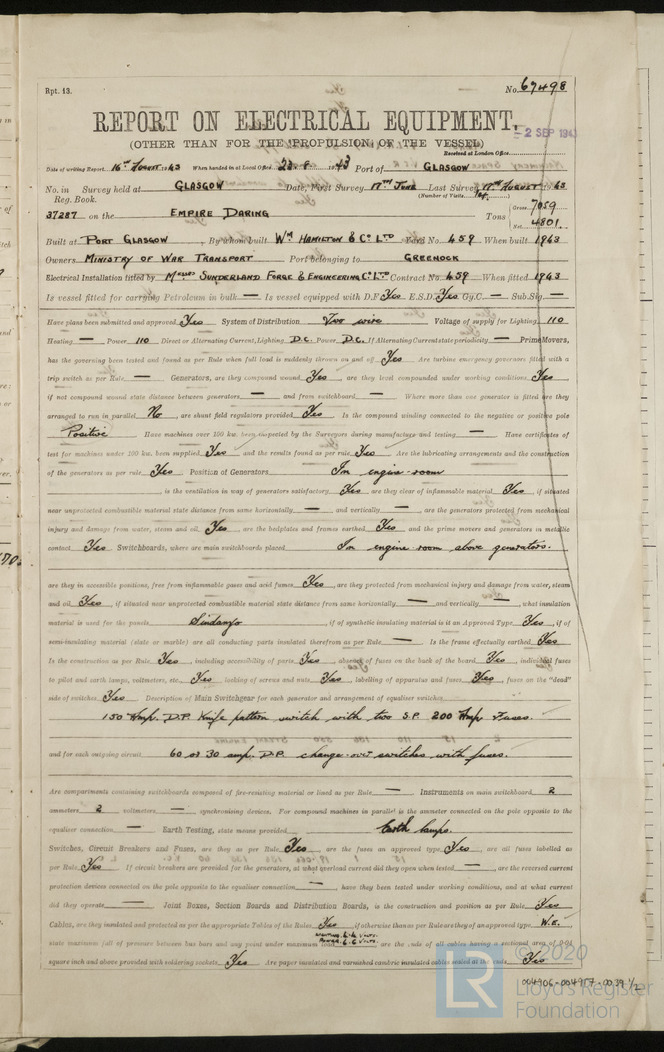 Rpt. 13.
No. 67498
REPORT ON ELECTRICAL EQUIPMENT.
(OTHER THAN FOR THE PROPULSION OF THE VESSEL)
2 SEP 194
Received at London Office
Date of writing Report 16th August 1943 When handed in at Local Office 23.8.1943 Port of GLASGOW
No. in Survey held at GLASGOW Date, First Survey 17th June Last Survey 17th August 1943
Reg. Book. (Number of Visits 14)
37287 on the EMPIRE DARING Tons Gross 7059 Net 4801
Built at PORT GLASGOW By whom built Wm HAMILTON & Co LTD Yard No. 459 When built 1943
Owners MINISTRY OF WAR TRANSPORT Port belonging to GREENOCK
Electrical Installation fitted by Messrs SUNDERLAND FORGE & ENGINEERING Co LTD Contract No. 459 When fitted 1943
Is vessel fitted for carrying Petroleum in bulk — Is vessel equipped with D.F. Yes E.S.D. Yes Gy.C. — Sub.Sig. —
Have plans been submitted and approved Yes System of Distribution Two wire Voltage of supply for Lighting 110
Heating — Power 110 Direct or Alternating Current, Lighting D.C. Power D.C. If Alternating Current state periodicity — Prime Movers,
has the governing been tested and found as per Rule when full load is suddenly thrown on and off Yes Are turbine emergency generators fitted with a
trip switch as per Rule — Generators, are they compound wound Yes, are they level compounded under working conditions Yes,
if not compound wound state distance between generators — and from switchboard — Where more than one generator is fitted are they
arranged to run in parallel No, are shunt field regulators provided Yes Is the compound winding connected to the negative or positive pole
Positive Have machines over 100 kw. been inspected by the Surveyors during manufacture and testing — Have certificates of
test for machines under 100 kw. been supplied Yes and the results found as per rule Yes Are the lubricating arrangements and the construction
of the generators as per rule Yes Position of Generators In engine-room
, is the ventilation in way of generators satisfactory Yes are they clear of inflammable material Yes, if situated
near unprotected combustible material state distance from same horizontally — and vertically —, are the generators protected from mechanical
injury and damage from water, steam and oil Yes, are the bedplates and frames earthed Yes and the prime movers and generators in metallic
contact Yes Switchboards, where are main switchboards placed In engine room above generators.
are they in accessible positions, free from inflammable gases and acid fumes Yes, are they protected from mechanical injury and damage from water, steam
and oil Yes, if situated near unprotected combustible material state distance from same horizontally — and vertically —, what insulation
material is used for the panels Sindanyo, if of synthetic insulating material is it an Approved Type Yes, if of
semi-insulating material (slate or marble) are all conducting parts insulated therefrom as per Rule — Is the frame effectually earthed Yes
Is the construction as per Rule Yes, including accessibility of parts Yes, absence of fuses on the back of the board Yes, individual fuses
to pilot and earth lamps, voltmeters, etc. Yes locking of screws and nuts Yes labelling of apparatus and fuses Yes, fuses on the "dead"
side of switches Yes Description of Main Switchgear for each generator and arrangement of equaliser switches
150 Amp. D.P. Knife pattern switch with two S.P. 200 Amp Fuses.
and for each outgoing circuit 60 or 30 amp. D.P. change-over switches with fuses.
Are compartments containing switchboards composed of fire-resisting material or lined as per Rule — Instruments on main switchboard 2
ammeters 2 voltmeters — synchronising devices. For compound machines in parallel is the ammeter connected on the pole opposite to the
equaliser connection — Earth Testing, state means provided Earth lamps.
Switches, Circuit Breakers and Fuses, are they as per Rule Yes, are the fuses an approved type Yes, are all fuses labelled as
per Rule Yes If circuit breakers are provided for the generators, at what overload current did they open when tested —, are the reversed current
protection devices connected on the pole opposite to the equaliser connection —, have they been tested under working conditions, and at what current
did they operate — Joint Boxes, Section Boards and Distribution Boards, is the construction and position as per Rule Yes
Cables, are they insulated and protected as per the appropriate Tables of the Rules Yes, if otherwise than as per Rule are they of an approved type W.E.
state maximum fall of pressure between bus bars and any point under maximum load are the ends of all cables having a sectional area of 0.04
square inch and above provided with soldering sockets Yes Are paper insulated and varnished cambric insulated cables sealed at the ends Yes
004906-004917-0039 1/2
© 2020
LR
Lloyd's Register
Foundation